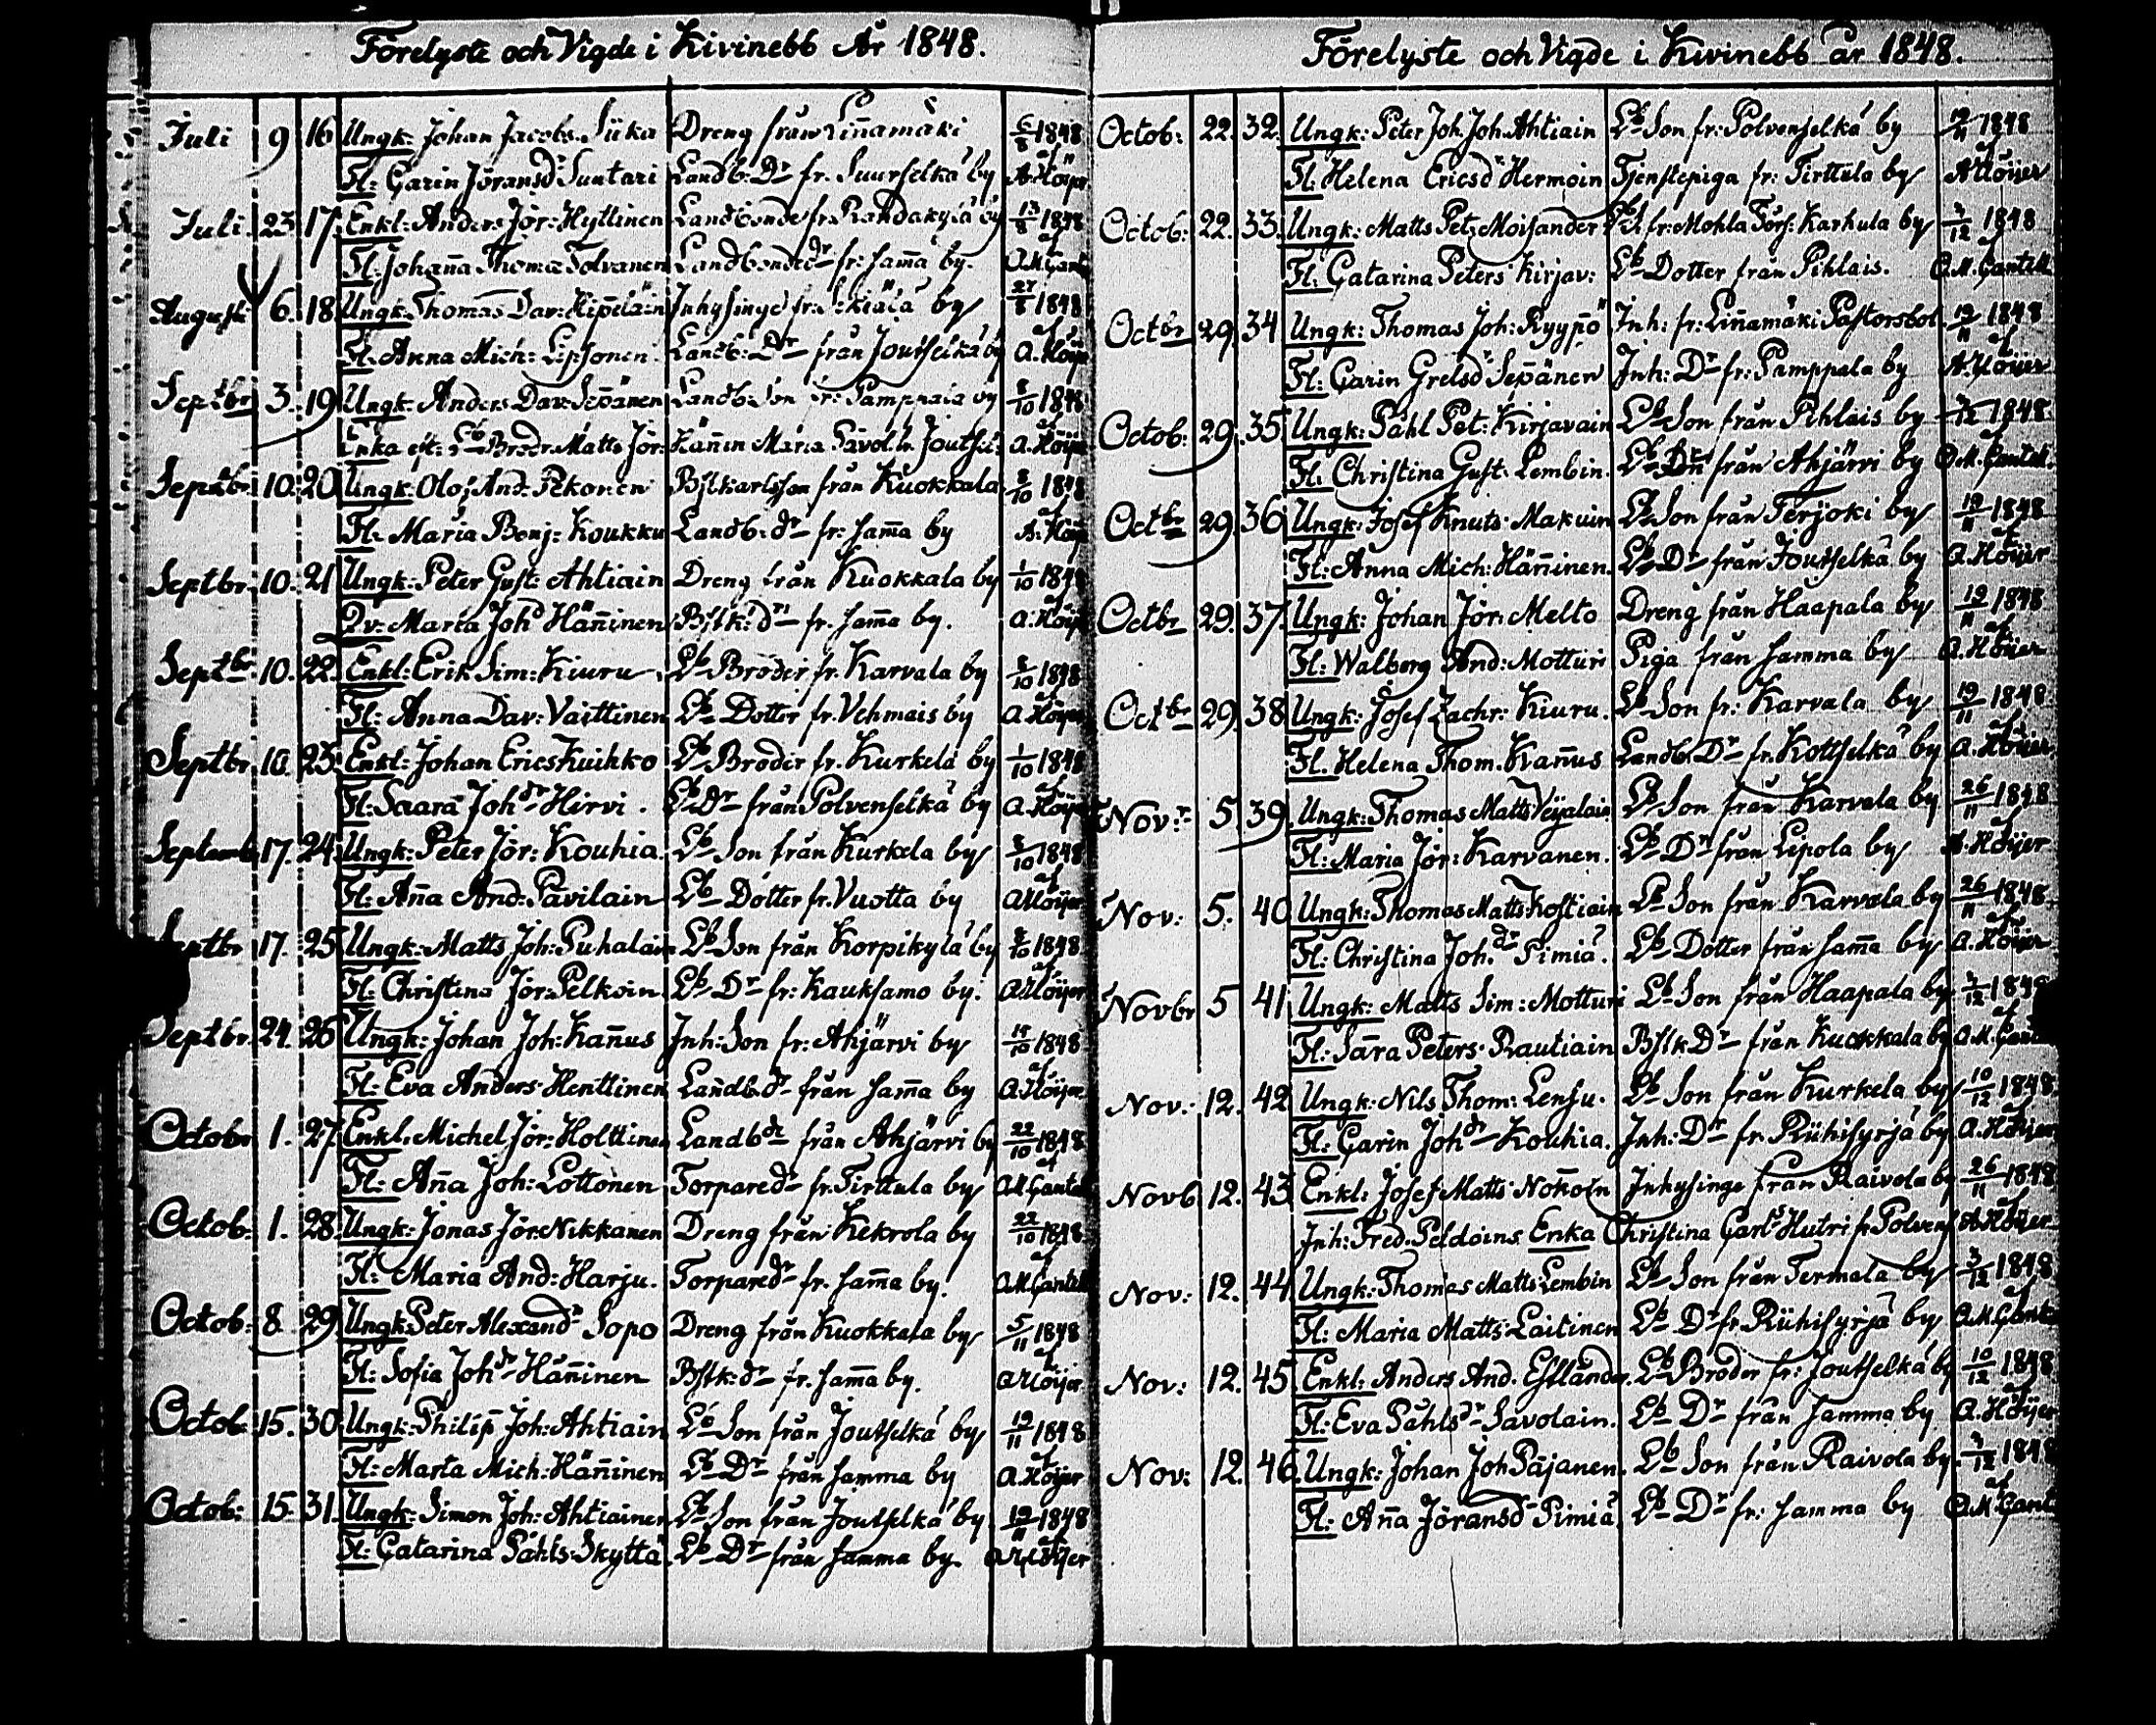 Förelyste och Vigde i Kivinebb År 1848.
Juli 9 16 Ungk: Johan Jacobs. Siika Dreng från Linnamäki 6/8 1848
Fl: Carin Jöransdr Suntari Landb: Dr fr. Suurselkä by af A. Höijer
Juli 23 17. Enkl: Anders Jör: Hyttinen Landbonde fr. Randakylä by 13/8 1848
Fl: Johanna Thomæ Tolvanen Landbondedr fr: samma by. af A.M. Gant
Augusti 6. 18 Ungk: Thomas Dav: Hippeläin Inhysinge fr. by 27/8 1848
Fl. Anna Mich: Lipsonen Landb: Dr från Joutselkä by af A. Höije
Septbr 3. 19 Ungk. Anders Dav: Seppänen Landb. Son fr: Pamppala by 8/10 1848
Enka eft: Lb Brodr. Matts Jör: Hänninen Maria Savol. fr Joutsel: af A. Höije
Septbr. 10. 20 Ungk: Olof And. Pekonen Bstkarlsson från Kuokkala 8/10 1848
Fl. Maria Benj: Koukku Landb: dr fr: samma by af A. Höij
Septbr. 10. 21 Ungk: Peter Gust: Ahtiain Dreng från Kuokkala by 1/10 1848
Qv: Maria Johd Hänninen Bstk: dr fr. samma by. af A. Höije
Septbr. 10. 22. Enkl: Erik Sim: Kiuru Lb Broder fr. Karvala by 8/10 1848
Fl: Anna Dav: Vaittinen Lb Dotter fr. Vehmais by af A. Höijer
Septbr. 10. 23. Enkl: Johan Erics Kuihko Lb Broder fr. Kurkela by 1/10 1848
Fl: Saara Johdr Hirvi. Lb Dr från Polvenselkä by af A. Höije
Septemb. 17. 24. Ungk: Peter Jör: Kouhia. Lb Son från Kurkela by 8/10 1848
Fl: Anna And: Pavilain Lb Dotter fr. Vuotta by af A. Höijer
Septbr. 17. 25 Ungk: Matts Joh: Puhalain Lb Son från Korpikylä by 8/10 1848
Fl: Christina Jör. Pelkoin Lb Dr fr: Kauksamo by. af A. Höijer
Septbr. 24. 26 Ungk: Johan Joh: Kannus Inh: Son fr: Ahjärvi by 15/10 1848
Fl: Eva Anders Henttinen Landb. dr från samma by af A. Höijer
Octobr 1. 27 Enkl. Michel Jör: Holttinen Landb dr från Ahjärvi by 22/10 1848
Fl: Anna Joh: Lottonen Torparedr fr. Tirttula by af A.M. Gantell
Octob: 1. 28. Ungk: Jonas Jör. Nikkanen Dreng från Kekrola by 22/10 1848
Fl: Maria And: Harju. Torparedr fr. samma by. af A.M. Gantell
Octob: 8 29 Ungk. Peter Alexandr Sopo Dreng från Kuokkala by 5/11 1848
Fl: Sofia Johdr Hänninen Bstk: dr fr. samma by. af A. Höijer
Octob 15. 30. Ungk: Philip Joh: Ahtiain Lb Son från Joutselkä by 19/11 1848
Fl: Marta Mich: Hänninen Lb Dr från samma by af A. Höijer
Octob: 15. 31. Ungk: Simon Joh: Ahtiainen Lb Son från Joutselkä by 19/11 1848
Fl: Catarina Påhls Skyttä Lb Dr från samma by. af A. Höijer
Förelyste och Vigde i Kivinebb år 1848.
Octob: 22. 32. Ungk: Peter Joh. Joh. Ahtiain Lb Son fr: Polvenselkä by 19/11 1848
Fl: Helena Ericsdr Hermoin Tjenstepiga fr: Tirttula by af A Höijer
Octob: 22. 33. Ungk: Matts Pet. Moisander fr: Mohla Förs: Karhula by 3/12 1848
Fl: Catarina Peters Kirjav: Lb Dotter från Pihlais. af A.M. Gantell
Octbr 29. 34 Ungk: Thomas Joh: Ryyppö Inh: fr: Linnamäki Pastorsbol 19/11 1848
Fl: Carin Grelsdr Seppänen Inh: Dr fr: Pamppala by af A. Höijer
Octob: 29. 35 Ungk: Påhl Pet: Kirjavain Lb Son från Pihlais by 3/12 1848
Fl. Christina Gust. Lembin. Lb Dr från Ahjärvi by af A.M. Gantell.
Octbr 29. 36 Ungk: Josef Knuts Makuin Lb Son från Terjoki by 19/11 1848
Fl: Anna Mich: Hänninen. Lb Dr från Joutselkä by af A. Höijer
Octbr 29. 37. Ungk: Johan Jör. Melto Dreng från Haapala by 19/11 1848
Fl: Walborg And: Motturi Piga från samma by af A. Höijer
Octbr 29. 38 Ungk: Josef Zachr: Kiuru. Lb Son fr: Karvala by 19/11 1848
Fl. Helena Thom. Kannus Landb. Dr fr. Kottselkä by af A. Höijer
Nov:r 5 39 Ungk: Thomas Matts Veijalain Lb Son från Karvala by 26/11 1848
Fl: Maria Jör: Karvanen. Lb Dr från Lepola by af A. Höijer
Nov: 5. 40 Ungk: Thomas Matts Kostiain Lb Son från Karvala by 26/11 1848
Fl: Christina Joh. dr Pimiä. Lb Dotter från samma by af A. Höijer
Novbr 5 41. Ungk: Matts Sim: Motturi Lb Son från Haapala by 3/12 1848
Fl: Sara Peters Rautiain Bstk Dr från Kuokkala by af A.M. Gant
Nov: 12. 42 Ungk: Nils Thom: Lensu. Lb Son från Kurkela by 10/12 1848
Fl: Carin Johdr Kouhia. Inh: Dr fr. Riihisyrjä by af A. Höijer
Novb 12. 43 Enkl: Josef Matts Nokoin Inhysinge från Raivola by 26/11 1848
Inh: Fred. Peldoins Enka Christina Carls Hutri fr. Polvens af A. Höijer
Nov: 12. 44 Ungk: Thomas Matts Lembin Lb Son från Termala by 3/12 1848
Fl: Maria Matts Laitinen Lb Dr fr Riihisyrjä by af A.M. Gante
Nov: 12. 45 Enkl: Anders And. Estlander. Lb Broder fr: Joutselkä by 10/12 1848
Fl: Eva Påhlsdr Savolain. Lb Dr från samma by af A. Höijer
Nov: 12. 46. Ungk: Johan Joh Pajanen. Lb Son från Raivola by. 3/12 1848
Fl: Anna Jöransd Pimiä Lb Dr fr: samma by af A.M. Gant